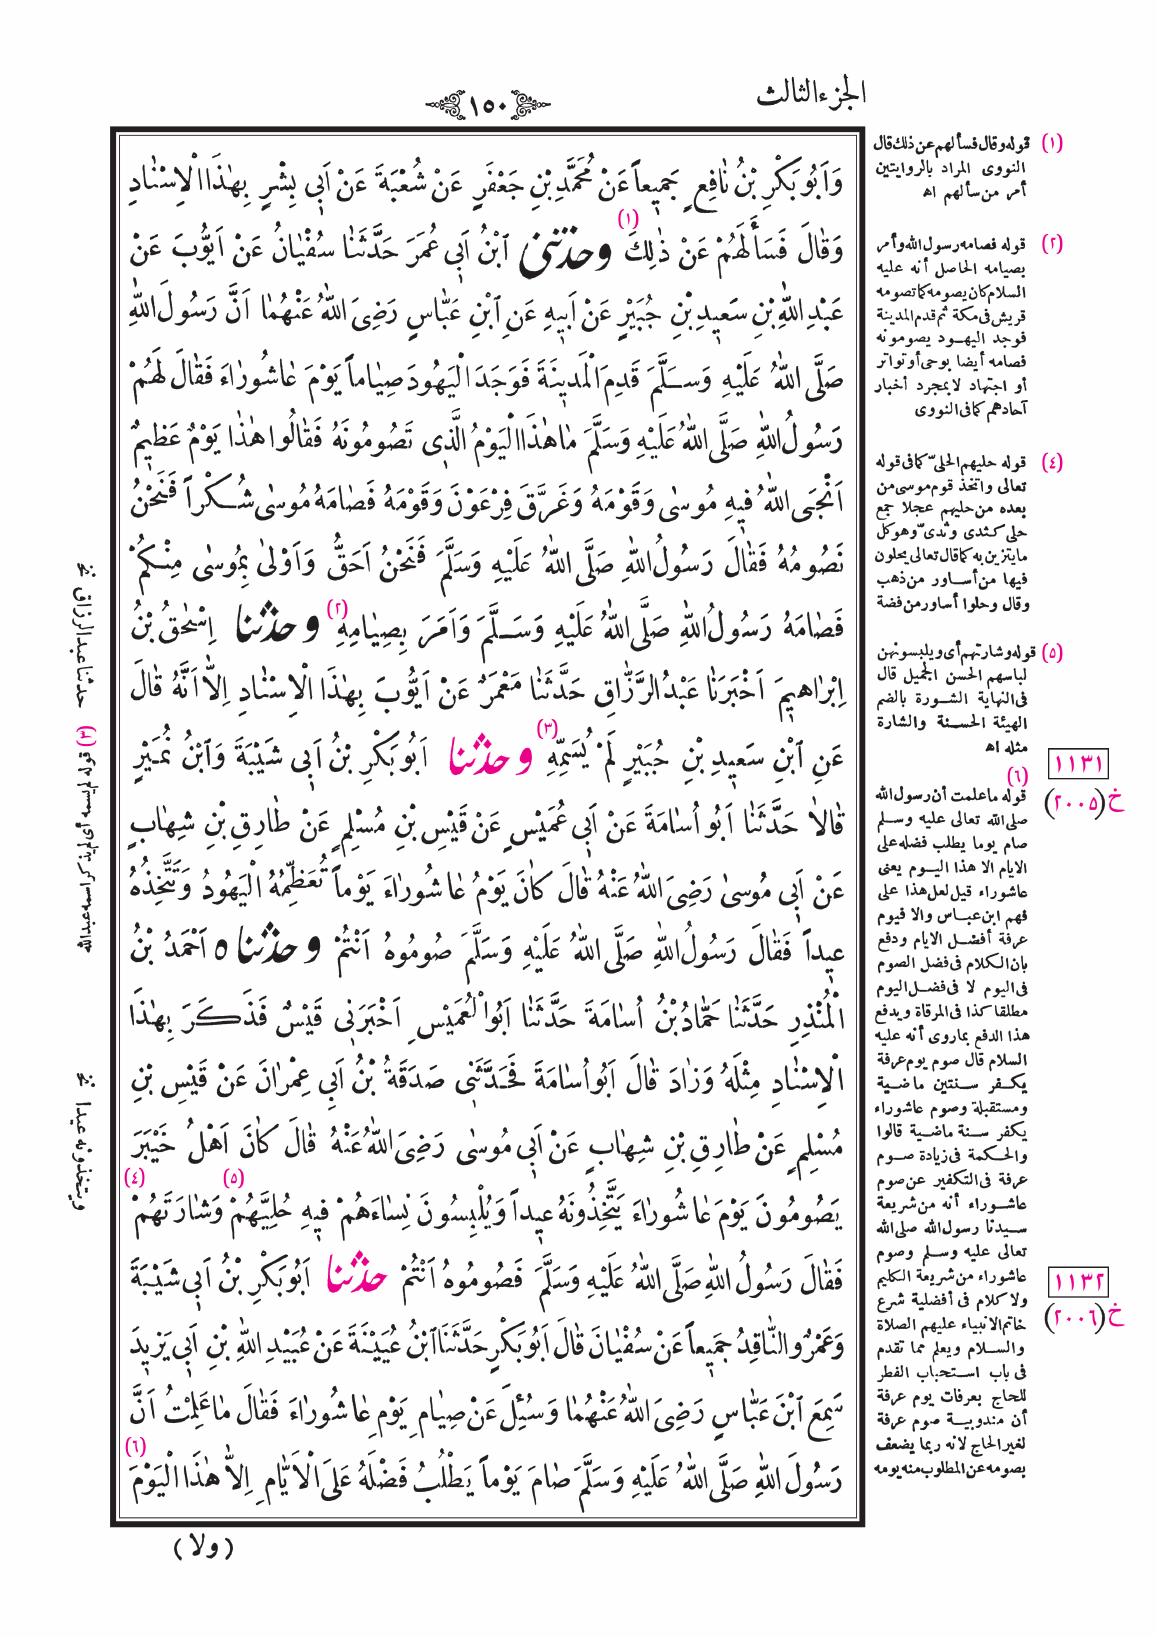 الجزء الثالث
١٥٠
وَاَبُو بَكْرِ بْنُ نَافِعٍ جَمِيعاً عَنْ مُحَمَّدِ بْنِ جَعْفَرٍ عَنْ شُعْبَةَ عَنْ اَبِي بِشْرٍ بِهٰذَا الْاِسْنَادِ
وَقَالَ فَسَأَلَهُمْ عَنْ ذٰلِكَ (١) وحدثنى اَبْنُ اَبِي عُمَرَ حَدَّثَنَا سُفْيَانُ عَنْ اَيُّوبَ عَنْ
عَبْدِ اللّٰهِ بْنِ سَعِيدِ بْنِ جُبَيْرٍ عَنْ اَبِيهِ عَنِ ابْنِ عَبَّاسٍ رَضِيَ اللّٰهُ عَنْهُمَا اَنَّ رَسُولَ اللّٰهِ
صَلَّى اللّٰهُ عَلَيْهِ وَسَلَّمَ قَدِمَ الْمَدِينَةَ فَوَجَدَ الْيَهُودَ صِيَاماً يَوْمَ عَاشُورَاءَ فَقَالَ لَهُمْ
رَسُولُ اللّٰهِ صَلَّى اللّٰهُ عَلَيْهِ وَسَلَّمَ مَا هٰذَا الْيَوْمُ الَّذِى تَصُومُونَهُ فَقَالُوا هٰذَا يَوْمٌ عَظِيمٌ
اَنْجَى اللّٰهُ فِيهِ مُوسٰى وَقَوْمَهُ وَغَرَّقَ فِرْعَوْنَ وَقَوْمَهُ فَصَامَهُ مُوسٰى شُكْراً فَنَحْنُ
نَصُومُهُ فَقَالَ رَسُولُ اللّٰهِ صَلَّى اللّٰهُ عَلَيْهِ وَسَلَّمَ فَنَحْنُ اَحَقُّ وَاَوْلٰى بِمُوسٰى مِنْكُمْ
فَصَامَهُ رَسُولُ اللّٰهِ صَلَّى اللّٰهُ عَلَيْهِ وَسَلَّمَ وَاَمَرَ بِصِيَامِهِ (٢) وحدثنا اِسْحٰقُ بْنُ
اِبْرَاهِيمَ اَخْبَرَنَا عَبْدُ الرَّزَّاقِ حَدَّثَنَا مَعْمَرٌ عَنْ اَيُّوبَ بِهٰذَا الْاِسْنَادِ اِلَّا اَنَّهُ قَالَ
عَنِ ابْنِ سَعِيدِ بْنِ جُبَيْرٍ لَمْ يُسَمِّهِ (٣) وحدثنا اَبُو بَكْرِ بْنُ اَبِي شَيْبَةَ وَابْنُ نُمَيْرٍ
قَالَا حَدَّثَنَا اَبُو اُسَامَةَ عَنْ اَبِي عُمَيْسٍ عَنْ قَيْسِ بْنِ مُسْلِمٍ عَنْ طَارِقِ بْنِ شِهَابٍ
عَنْ اَبِي مُوسٰى رَضِيَ اللّٰهُ عَنْهُ قَالَ كَانَ يَوْمُ عَاشُورَاءَ يَوْماً تُعَظِّمُهُ الْيَهُودُ وَتَتَّخِذُهُ
عِيداً فَقَالَ رَسُولُ اللّٰهِ صَلَّى اللّٰهُ عَلَيْهِ وَسَلَّمَ صُومُوهُ اَنْتُمْ وحدثنا ه اَحْمَدُ بْنُ
الْمُنْذِرِ حَدَّثَنَا حَمَّادُ بْنُ اُسَامَةَ حَدَّثَنَا اَبُو الْعُمَيْسِ اَخْبَرَنِي قَيْسٌ فَذَكَرَ بِهٰذَا
الْاِسْنَادِ مِثْلَهُ وَزَادَ قَالَ اَبُو اُسَامَةَ فَحَدَّثَنِى صَدَقَةُ بْنُ اَبِي عِمْرَانَ عَنْ قَيْسِ بْنِ
مُسْلِمٍ عَنْ طَارِقِ بْنِ شِهَابٍ عَنْ اَبِي مُوسٰى رَضِيَ اللّٰهُ عَنْهُ قَالَ كَانَ اَهْلُ خَيْبَرَ
يَصُومُونَ يَوْمَ عَاشُورَاءَ يَتَّخِذُونَهُ عِيداً وَيُلْبِسُونَ نِسَاءَهُمْ فِيهِ حُلِيَّهُمْ (٥) وَشَارَتَهُمْ (٤)
فَقَالَ رَسُولُ اللّٰهِ صَلَّى اللّٰهُ عَلَيْهِ وَسَلَّمَ فَصُومُوهُ اَنْتُمْ حدثنا اَبُو بَكْرِ بْنُ اَبِي شَيْبَةَ
وَعَمْرٌو النَّاقِدُ جَمِيعاً عَنْ سُفْيَانَ قَالَ اَبُو بَكْرٍ حَدَّثَنَا ابْنُ عُيَيْنَةَ عَنْ عُبَيْدِ اللّٰهِ بْنِ اَبِي يَزِيدَ
سَمِعَ ابْنَ عَبَّاسٍ رَضِيَ اللّٰهُ عَنْهُمَا وَسُئِلَ عَنْ صِيَامِ يَوْمِ عَاشُورَاءَ فَقَالَ مَا عَلِمْتُ اَنَّ
رَسُولَ اللّٰهِ صَلَّى اللّٰهُ عَلَيْهِ وَسَلَّمَ صَامَ يَوْماً يَطْلُبُ فَضْلَهُ عَلَى الْاَيَّامِ اِلَّا هٰذَا الْيَوْمَ (٦)
( ولا )
(١) قوله وقال فسألهم عن ذلك قال
النووى المراد بالروايتين
أمر من سألهم اه
(٢) قوله فصامه رسول الله وأمر
بصيامه الحاصل أنه عليه
السلام كان يصومه كما تصومه
قريش فى مكة ثم قدم المدينة
فوجد اليهود يصومونه
فصامه أيضا بوحى أو تواتر
أو اجتهاد لا بمجرد أخبار
آحادهم كما فى النووى
(٤) قوله حليهم الحلىّ كما فى قوله
تعالى واتخذ قوم موسى من
بعده من حليهم عجلا جمع
حلى كثدى وثدىّ وهو كل
ما يتزين به كما قال تعالى يحلون
فيها من أساور من ذهب
وقال وحلوا أساور من فضة
(٥) قوله وشارتهم أى ويلبسونهن
لباسهم الحسن الجميل قال
فى النهاية الشورة بالضم
الهيئة الحسنة والشارة
مثله اه
(٦)
قوله ما علمت أن رسول الله
صلى الله تعالى عليه وسلم
صام يوما يطلب فضله على
الايام الا هذا اليوم يعنى
عاشوراء قيل لعل هذا على
فهم ابن عباس والا فيوم
عرفة أفضل الايام ودفع
بان الكلام فى فضل الصوم
فى اليوم لا فى فضل اليوم
مطلقا كذا فى المرقاة ويدفع
هذا الدفع بما روى أنه عليه
السلام قال صوم يوم عرفة
يكفر سنتين ماضية
ومستقبلة وصوم عاشوراء
يكفر سنة ماضية قالوا
والحكمة فى زيادة صوم
عرفة فى التكفير عن صوم
عاشوراء أنه من شريعة
سيدنا رسول الله صلى الله
تعالى عليه وسلم وصوم
عاشوراء من شريعة الكليم
ولا كلام فى أفضلية شرع
خاتم الانبياء عليهم الصلاة
والسلام ويعلم مما تقدم
فى باب استحباب الفطر
للحاج بعرفات يوم عرفة
أن مندوبية صوم عرفة
لغير الحاج لانه ربما يضعف
بصومه عن المطلوب منه يومه
١١٣١
خ (٢٠٠٥)
١١٣٢
خ (٢٠٠٦)
حدثنا عبد الرزاق نخ
(٣) قوله لم يسمه اى لم يذكر اسمه عبد الله
ويتخذونه عيدا نخ